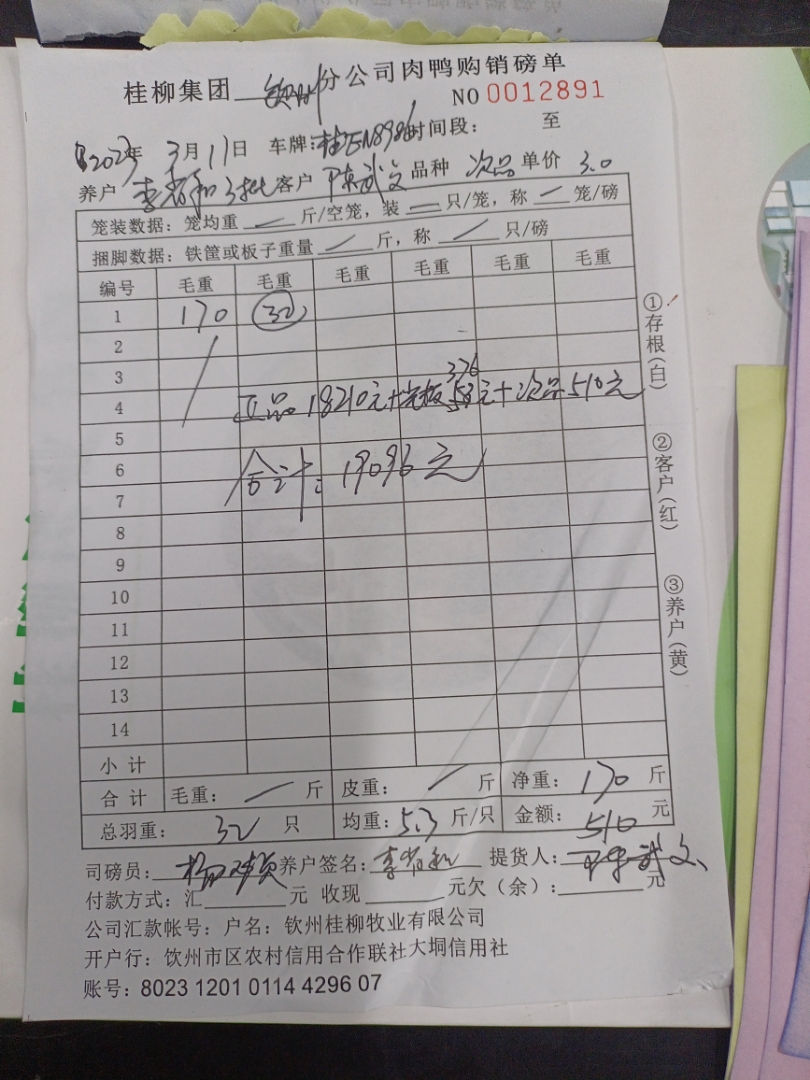 桂柳集团 钦州 分公司肉鸭购销磅单
NO 0012891
2023年 3月11日 车牌: 时间段: 至
养户 李 和 3批 客户 陈武文 品种 次品 单价 3.0
笼装数据: 笼均重 — 斤/空笼, 装 — 只/笼, 称 — 笼/磅
捆脚数据: 铁筐或板子重量 / 斤, 称 / 只/磅
编号 毛重 毛重 毛重 毛重 毛重 毛重
1 170 32
2
3
376
4 正品 18210元+ 板 元+次品510元
5
6 合计: 19096元
7
8
9
10
11
12
13
14
小计
合计 毛重: / 斤 皮重: / 斤 净重: 170 斤
总羽重: 32 只 均重: 5.3 斤/只 金额: 510 元
司磅员: 养户签名: 李 和 提货人: 陈武文
付款方式: 汇 元 收现 元欠(余): 元
公司汇款帐号: 户名: 钦州桂柳牧业有限公司
开户行: 饮州市区农村信用合作联社大垌信用社
账号: 8023 1201 0114 4296 07
①存根(白)
②客户(红)
③养户(黄)